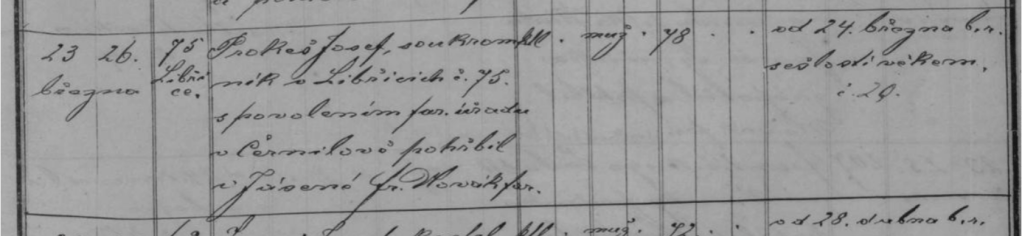 23 26. 75 Prokeš Josef, soukrom ktl. muž. 78 . . od 24. března b. r.
března Libři ník v Libřicích č. 75. sešlostí věkem.
ce. s povolením far. úřadu č. 29.
v Černilově pohřbil
v Jásené fr. Novák far.
muž. 72 . . od 28. dubna b. r.